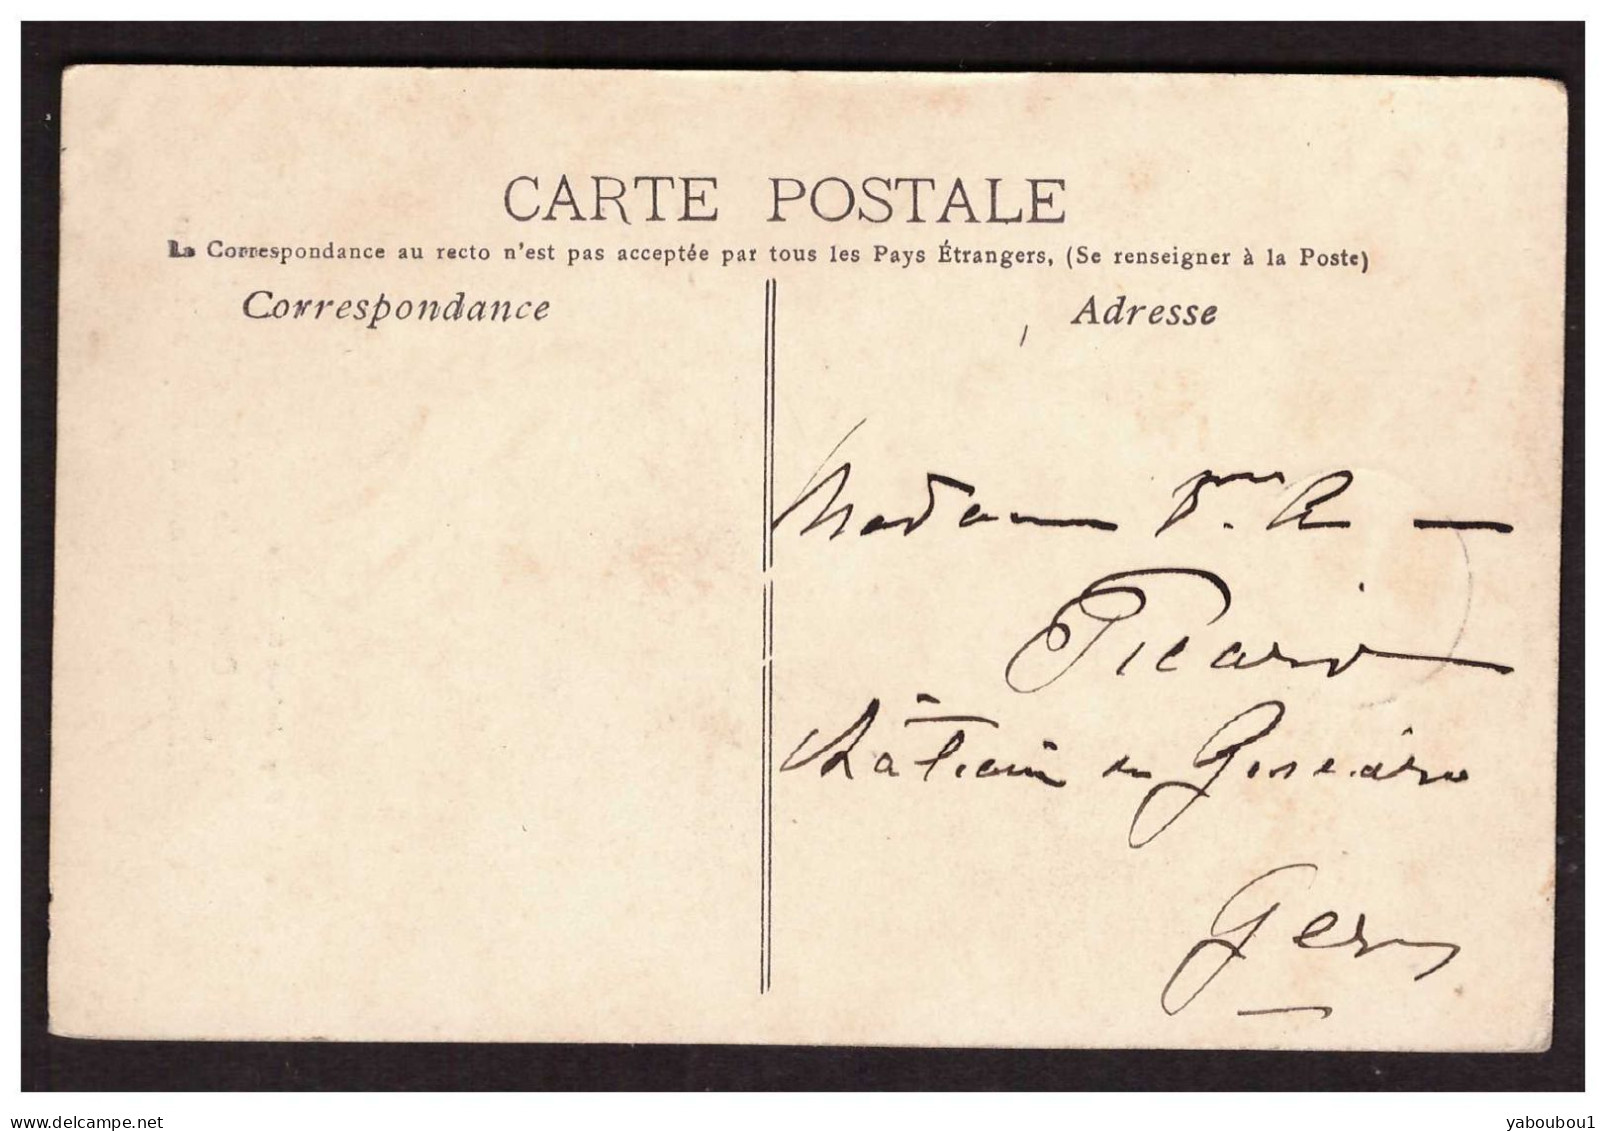 CARTE POSTALE
La Correspondance au recto n'est pas acceptée par tous les Pays Étrangers, (Se renseigner à la Poste)
Correspondance
Adresse
Madame
Picard
Gers
delcampe.net
yaboubou1